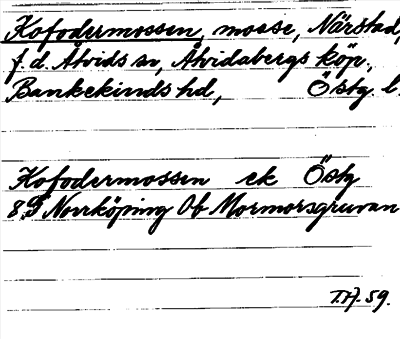 Kofodermossen, mosse, Närstad,
f.d. Åtvids sn, Åtvidabergs köp.,
Bankekinds hd, Östg. l.
Kofodermossen ek Östg
8 G Norrköping Ob Mormorsgruvan
T.H. 59.